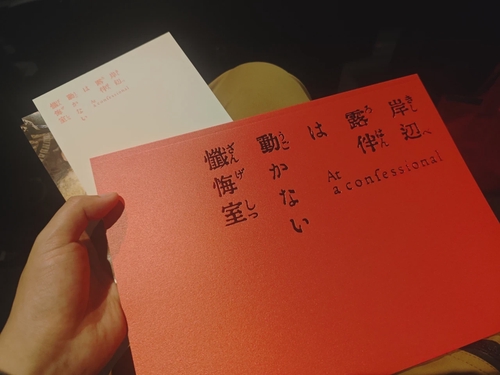 岸辺
きしべ
露伴
ろはん
は
動かない
うご
懺悔室
ざんげしつ
At
a confessional
岸辺
露伴
は
動かない
懺悔室
At
a confessional